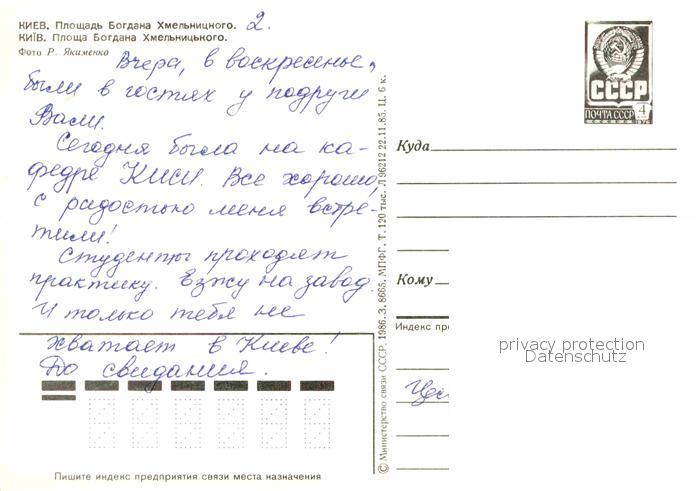 КИЕВ. Площадь Богдана Хмельницкого. 2.
КИЇВ. Площа Богдана Хмельницького.
Фото Р. Якименко
Вчера, в воскресенье,
были в гостях у подруги
Васи.
Сегодня была на ка-
федре КИСИ. Все хорошо,
с радостью меня встре-
тили!
Студенты проходят
практику. Езжу на завод.
И только тебя не
хватает в Киеве!
До свидания.
Пишите индекс предприятия связи места назначения
© Министерство связи СССР, 1986. З. 8665. МПФГ. Т. 120 тыс. Л 96212 22.11.85. Ц. 6 к.
СССР
ПОЧТА СССР 4
Куда
Кому
Индекс пр
privacy protection
Datenschutz